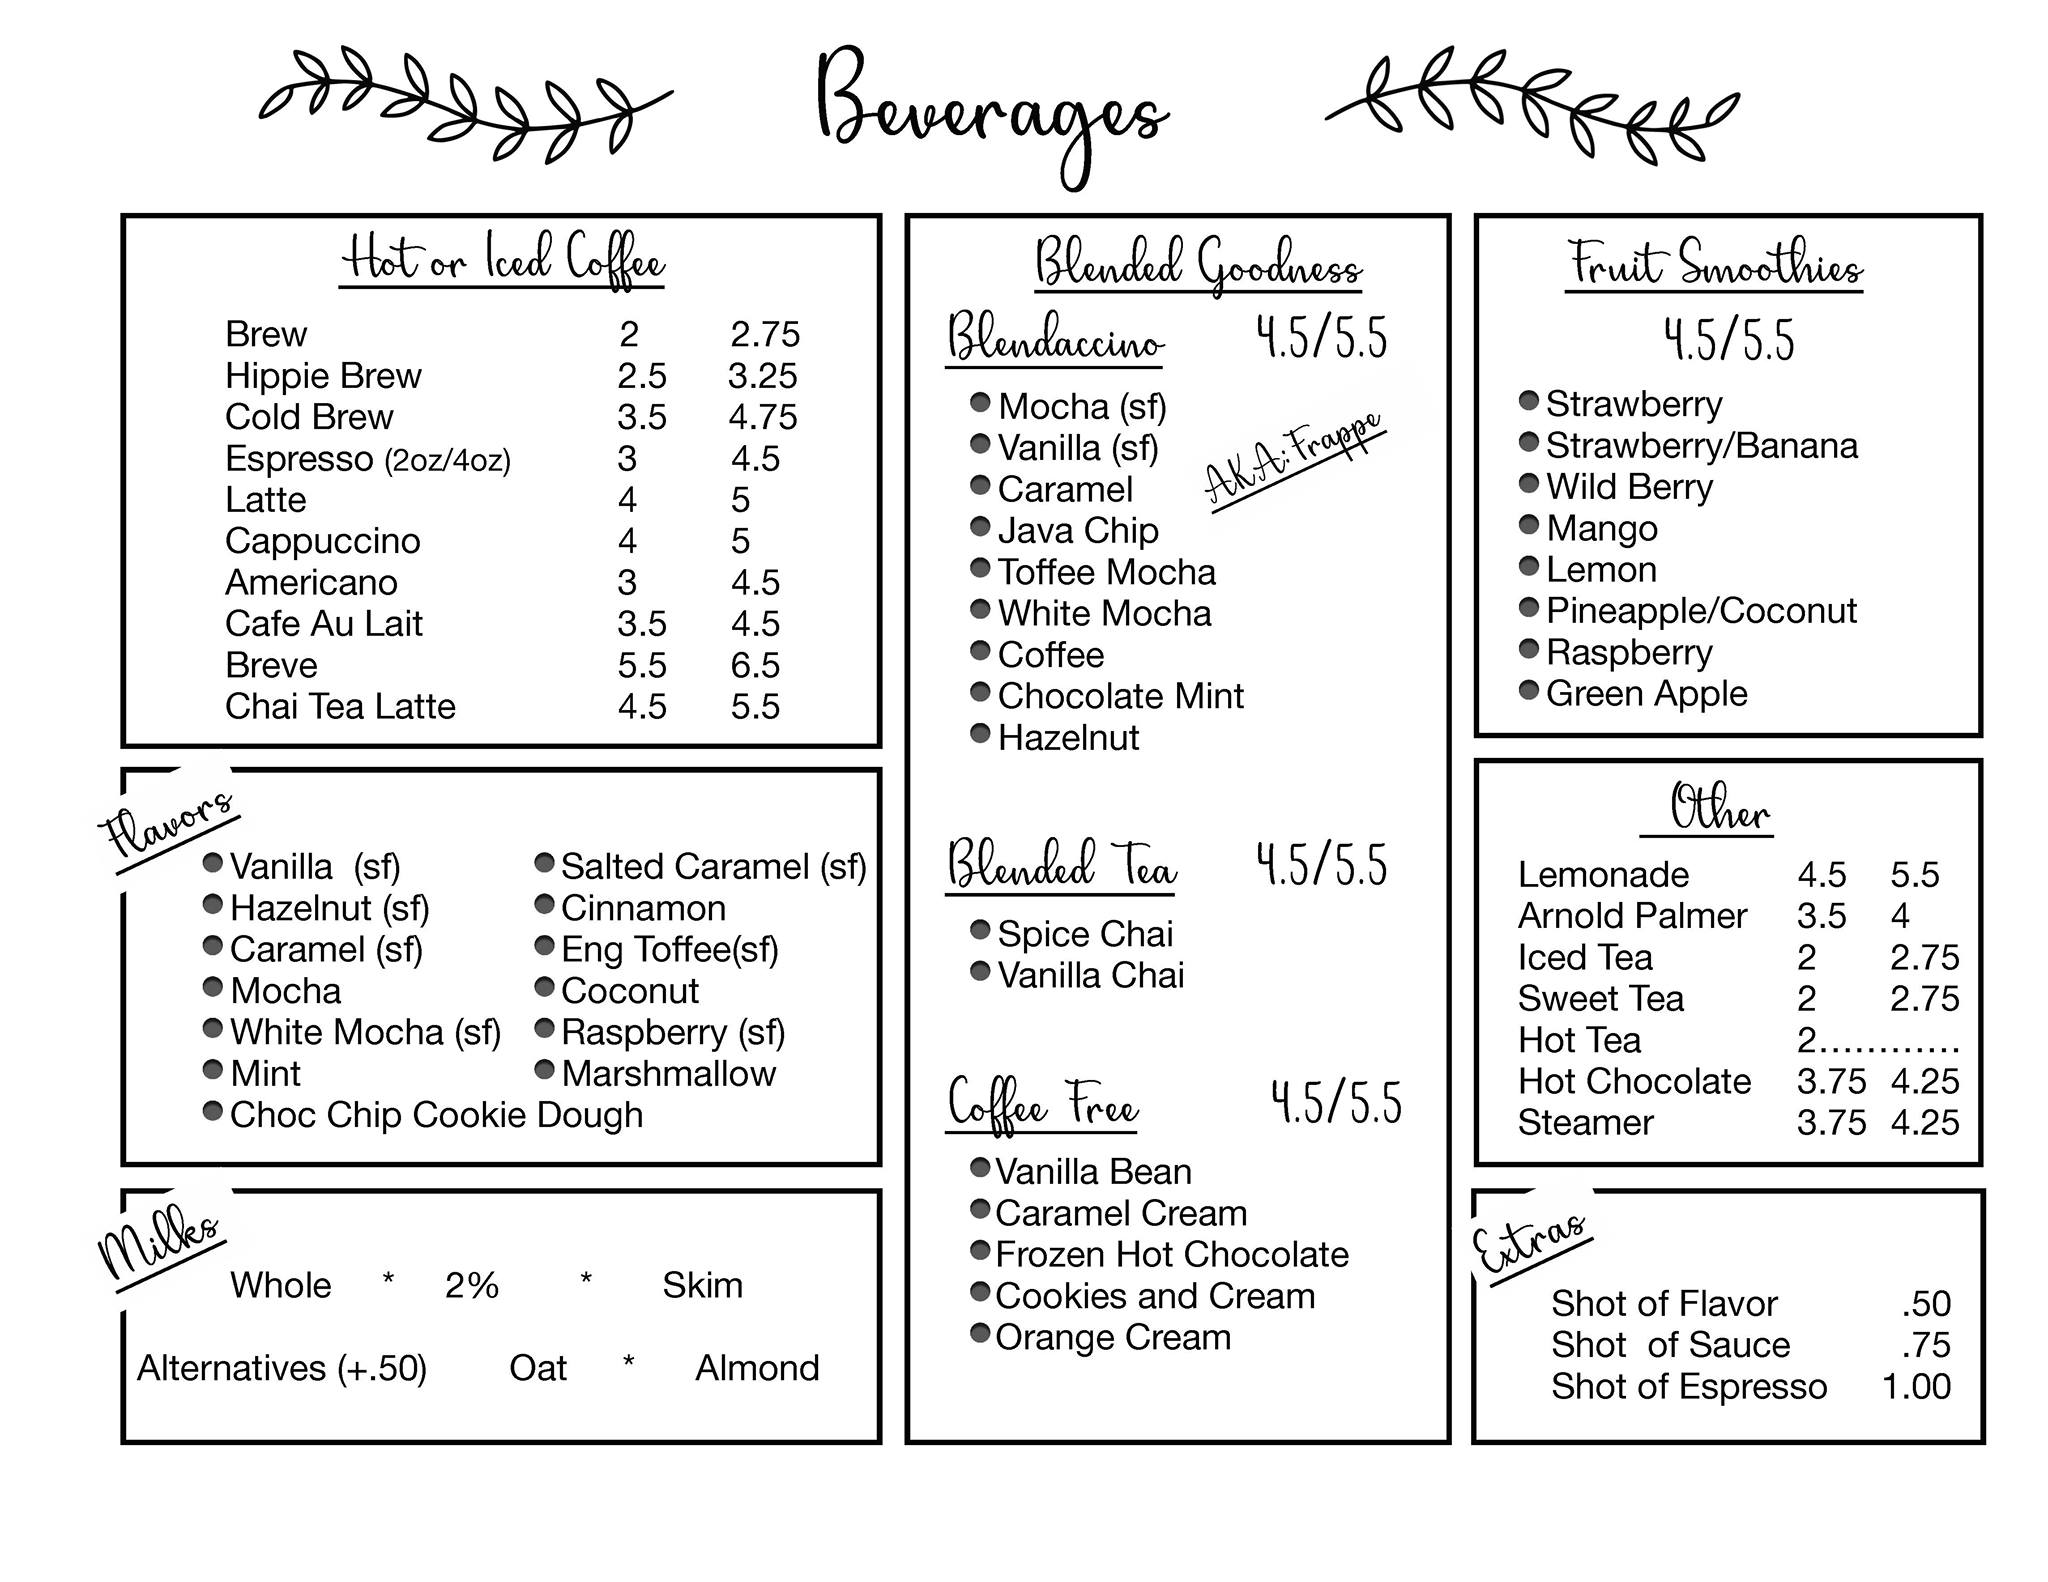 Beverages
Hot or Iced Coffee
Brew 2 2.75
Hippie Brew 2.5 3.25
Cold Brew 3.5 4.75
Espresso (2oz/4oz) 3 4.5
Latte 4 5
Cappuccino 4 5
Americano 3 4.5
Cafe Au Lait 3.5 4.5
Breve 5.5 6.5
Chai Tea Latte 4.5 5.5
Flavors
Vanilla (sf) Salted Caramel (sf)
Hazelnut (sf) Cinnamon
Caramel (sf) Eng Toffee(sf)
Mocha Coconut
White Mocha (sf) Raspberry (sf)
Mint Marshmallow
Choc Chip Cookie Dough
Milks
Whole * 2% * Skim
Alternatives (+.50) Oat * Almond
Blended Goodness
Blendaccino 4.5/5.5
AKA: Frappe
Mocha (sf)
Vanilla (sf)
Caramel
Java Chip
Toffee Mocha
White Mocha
Coffee
Chocolate Mint
Hazelnut
Blended Tea 4.5/5.5
Spice Chai
Vanilla Chai
Coffee Free 4.5/5.5
Vanilla Bean
Caramel Cream
Frozen Hot Chocolate
Cookies and Cream
Orange Cream
Fruit Smoothies
4.5/5.5
Strawberry
Strawberry/Banana
Wild Berry
Mango
Lemon
Pineapple/Coconut
Raspberry
Green Apple
Other
Lemonade 4.5 5.5
Arnold Palmer 3.5 4
Iced Tea 2 2.75
Sweet Tea 2 2.75
Hot Tea 2............
Hot Chocolate 3.75 4.25
Steamer 3.75 4.25
Extras
Shot of Flavor .50
Shot of Sauce .75
Shot of Espresso 1.00